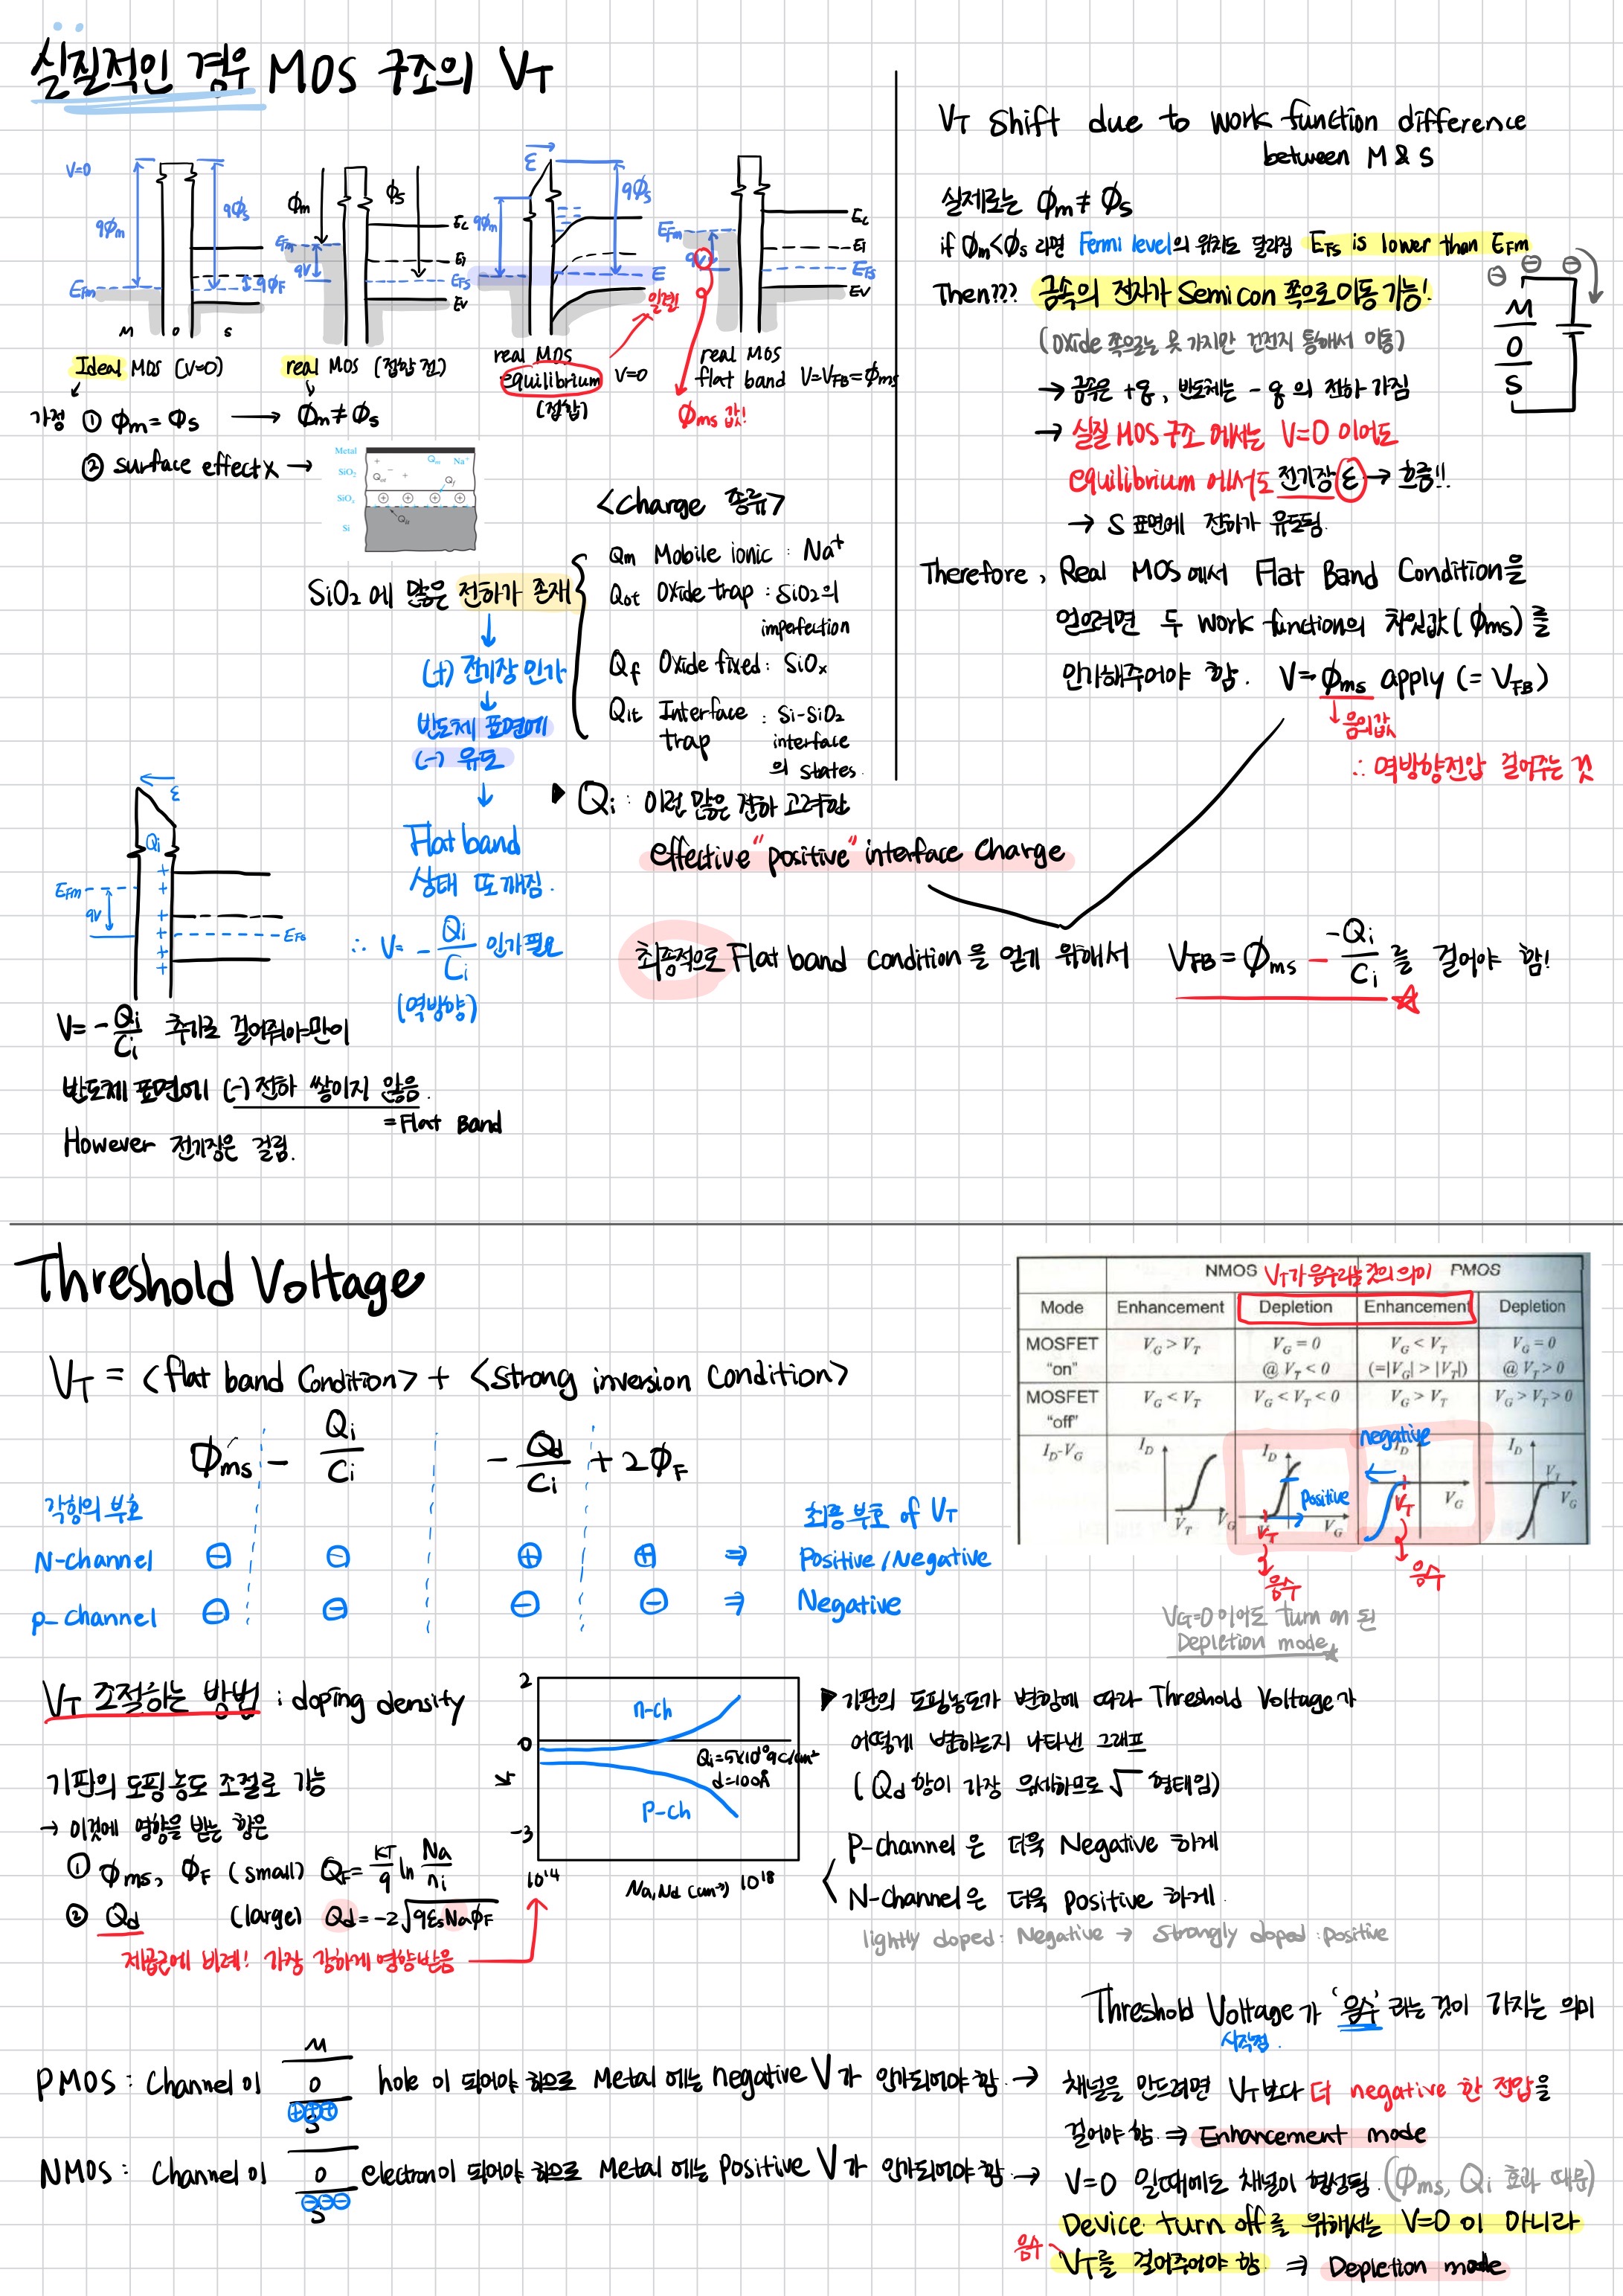 실질적인 경우 MOS 구조의 VT
V=0
qΦm
qΦs
EFm
qΦF
M O S
Ideal MOS (V=0)
Φm
Φs
EFm
qV
Ec
Ei
EFs
Ev
real MOS (접합 전)
ε
qΦm
qΦs
E
일렬!
real MOS
equilibrium V=0
(접합)
EFm
qV
Ec
Ei
EFs
Ev
real MOS
flat band V=VFB=Φms
Φms 값!
가정 ① Φm = Φs → Φm ≠ Φs
② surface effect X →
Metal
SiO2
SiOx
Si
Qm Na+
Qot
Qf
Qit
SiO2에 많은 전하가 존재
(+) 전기장 인가
반도체 표면에
(-) 유도
Flat band
상태 또 깨짐.
∴ V= -Qi/Ci 인가 필요
(역방향)
<Charge 종류>
Qm Mobile ionic : Na+
Qot Oxide trap : SiO2의
imperfection
Qf Oxide fixed : SiOx
Qit Interface trap : Si-SiO2
interface
의 states.
▶ Qi : 이런 많은 전하 고려한
effective "positive" interface charge
ε
Qi
EFm
qV
EFs
V= -Qi/Ci 추가로 걸어줘야만이
반도체 표면에 (-) 전하 쌓이지 않음.
= Flat Band
However 전기장은 걸림.
VT Shift due to work function difference
between M & S
실제로는 Φm ≠ Φs
if Φm<Φs 라면 Fermi level의 위치도 달라짐 EFs is lower than EFm
Then??? 금속의 전자가 Semicon 쪽으로 이동 가능!
(Oxide 쪽으로는 못 가지만 건전지 통해서 이동)
M
O
S
→ 금속은 +q, 반도체는 -q의 전하 가짐
→ 실질 MOS 구조에서는 V=0 이어도
equilibrium 에서도 전기장 ε → 흐름!!
→ S 표면에 전하가 유도됨.
Therefore, Real MOS에서 Flat Band Condition을
얻으려면 두 work function의 차잇값(Φms)를
인가해주어야 함. V=Φms apply (= VFB)
↓음의값
∴ 역방향전압 걸어주는 것
최종적으로 Flat band condition을 얻기 위해서 VFB = Φms - -Qi/Ci 를 걸어야 함!
Threshold Voltage
VT = <flat band Condition> + <strong inversion condition>
Φms - Qi/Ci - Qd/Ci + 2ΦF
각항의 부호
최종 부호 of VT
N-channel ⊖ ⊖ ⊕ ⊕ ⇒ Positive/Negative
p-channel ⊖ ⊖ ⊖ ⊖ ⇒ Negative
NMOS VT가 음수라는 것의 의미 PMOS
Mode Enhancement Depletion Enhancement Depletion
MOSFET "on" VG > VT VG = 0 @ VT < 0 VG < VT (=|VG| > |VT|) VG = 0 @ VT > 0
MOSFET "off" VG < VT VG < VT < 0 VG > VT VG > VT > 0
ID-VG
ID VT VG
ID positive VT VG
negative ID VT VG
ID VT VG
음수
음수
VG=0이어도 turn on 된
Depletion mode
VT 조절하는 방법 : doping density
기판의 도핑농도 조절로 가능
→ 이것에 영향을 받는 항은
① Φms, ΦF (small) QF = KT/q ln Na/ni
② Qd (large) Qd = -2√qεsNaΦF
제곱근에 비례! 가장 강하게 영향받음
2
0
-3
n-ch
Qi=5×10¹⁰q C/cm²
d=100Å
p-ch
10¹⁴ Na, Nd (cm⁻³) 10¹⁸
▶ 기판의 도핑농도가 변함에 따라 Threshold Voltage가
어떻게 변하는지 나타낸 그래프
(Qd 항이 가장 우세하므로 √ 형태임)
P-channel은 더욱 Negative 하게
N-channel은 더욱 positive 하게
lightly doped : Negative → strongly doped : positive
Threshold Voltage가 '음수'라는 것이 가지는 의미
시작점.
PMOS : Channel이 M O S hole이 되어야 하므로 Metal에는 negative V가 인가되어야 함. →
채널을 만드려면 VT보다 더 negative한 전압을
걸어야 함. ⇒ Enhancement mode
NMOS : Channel이 O S electron이 되어야 하므로 Metal에는 Positive V가 인가되어야 함. →
V=0 일때에도 채널이 형성됨. (Φms, Qi 효과 때문)
Device turn off를 위해서는 V=0이 아니라
음수
VT를 걸어주어야 함 ⇒ Depletion mode